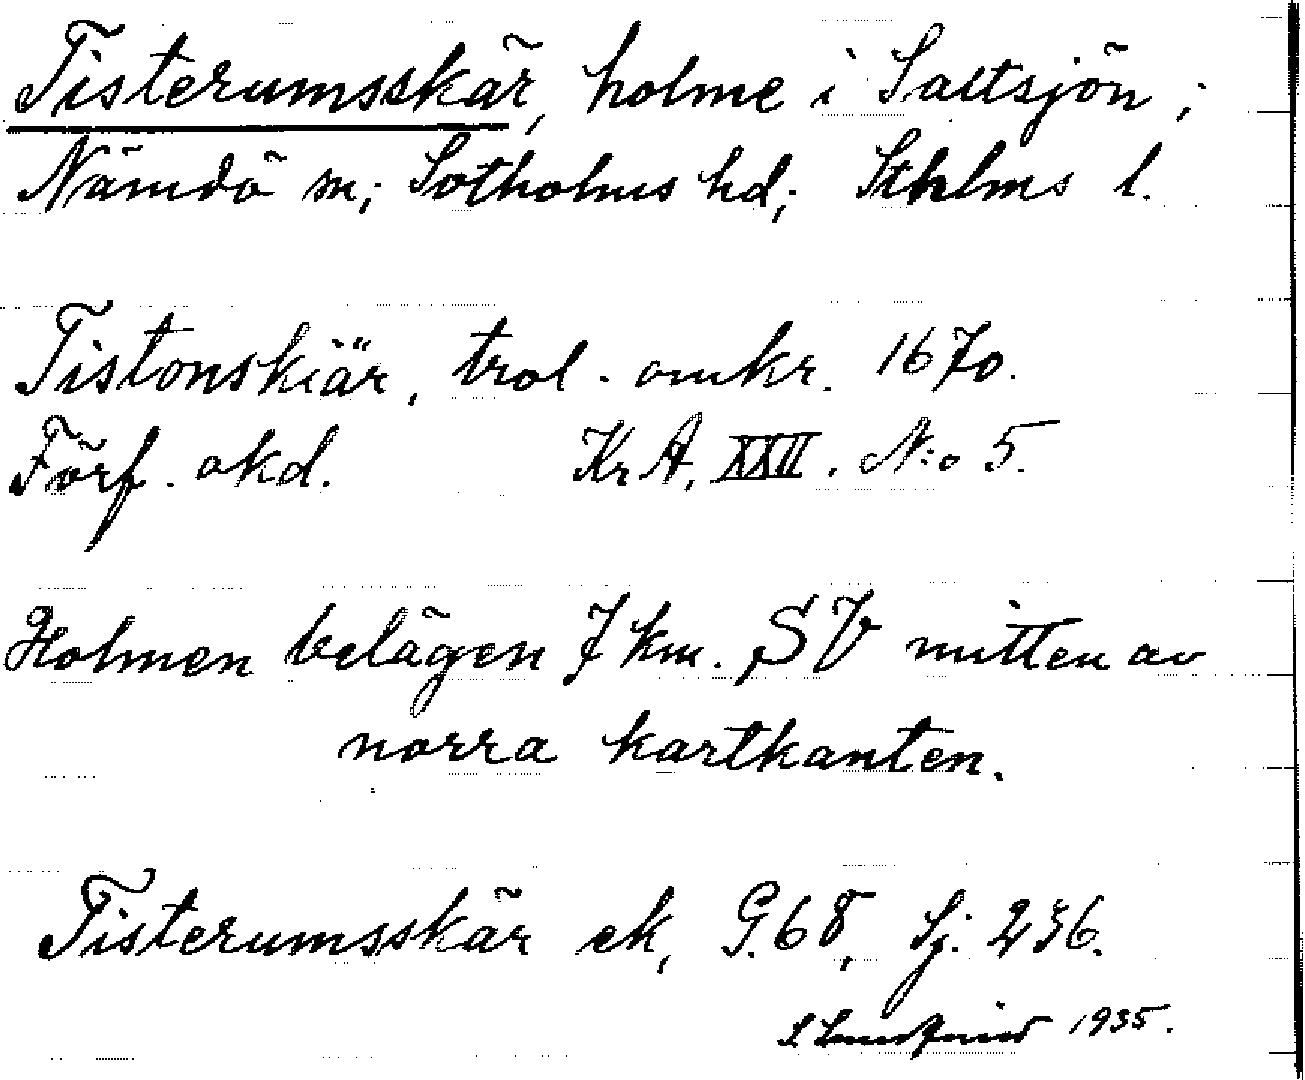 Tisterumsskär, holme i Saltsjön;
Nämdö sn; Sotholms hd; Sthlms l.
Tistonskiär, trol. omkr. 1670.
Förf. okd. KrA, XXII. N:o 5.
Holmen belägen 7 km. SV mitten av
norra kartkanten.
Tisterumsskär ek, G. 68, Sj. 236.
1935.